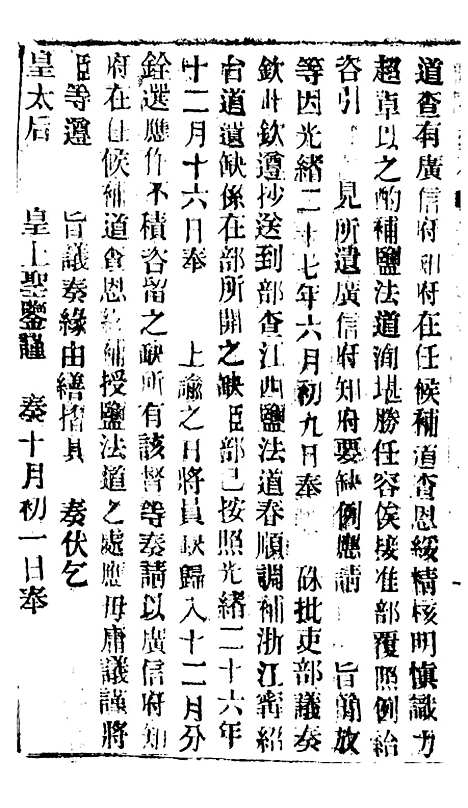 道查有廣信府知府在任候補道查恩綏精核明慎識力
超卓以之酌補鹽法道洵堪勝任容俟接准部覆照例給
咨引 見所遺廣信府知府要缺例應請 旨簡放
等因光緒二十七年六月初九日奉 硃批吏部議奏
欽此欽遵抄送到部查江西鹽法道春順調補浙江甯紹
台道遺缺係在部所開之缺臣部已按照光緒二十六年
十二月十六日奉 上諭之日將員缺歸入十二月分
銓選應作不積咨留之缺所有該督等奏請以廣信府知
府在任候補道查恩綏補授鹽法道之處應毋庸議謹將
臣等遵 旨議奏緣由繕摺具 奏伏乞
皇太后 皇上聖鑒謹 奏十月初一日奉